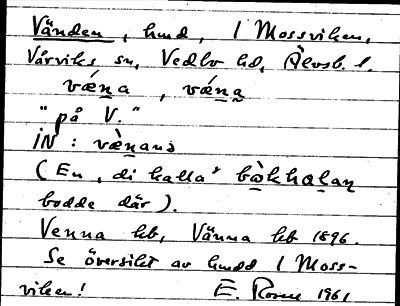 Vänden, hmd, I Mossviken,
Vårviks sn, Vedbo hd, Älvsb. l.
væ̀n̠a, væ̀n̠a̠
"på V."
iN: væ̀n̠ans
(En, di kalla' bò̠khal̠an̠
bodde där).
Venna kb, Vänna kb 1896.
Se översikt av hmdd I Moss-
viken! E. Rosen 1961